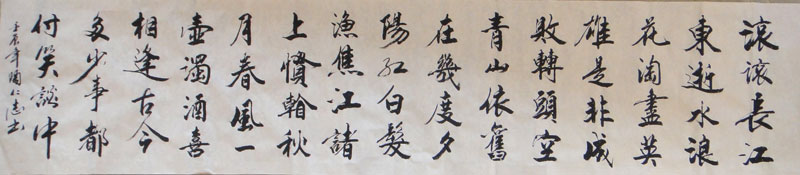 滚滚長江
東逝水浪
花淘盡英
雄是非成
敗轉頭空
青山依舊
在幾度夕
陽紅白髮
漁樵江諸
上慣翰秋
月春風一
壺濁酒喜
相逢古今
多少事都
付笑談中
壬辰年